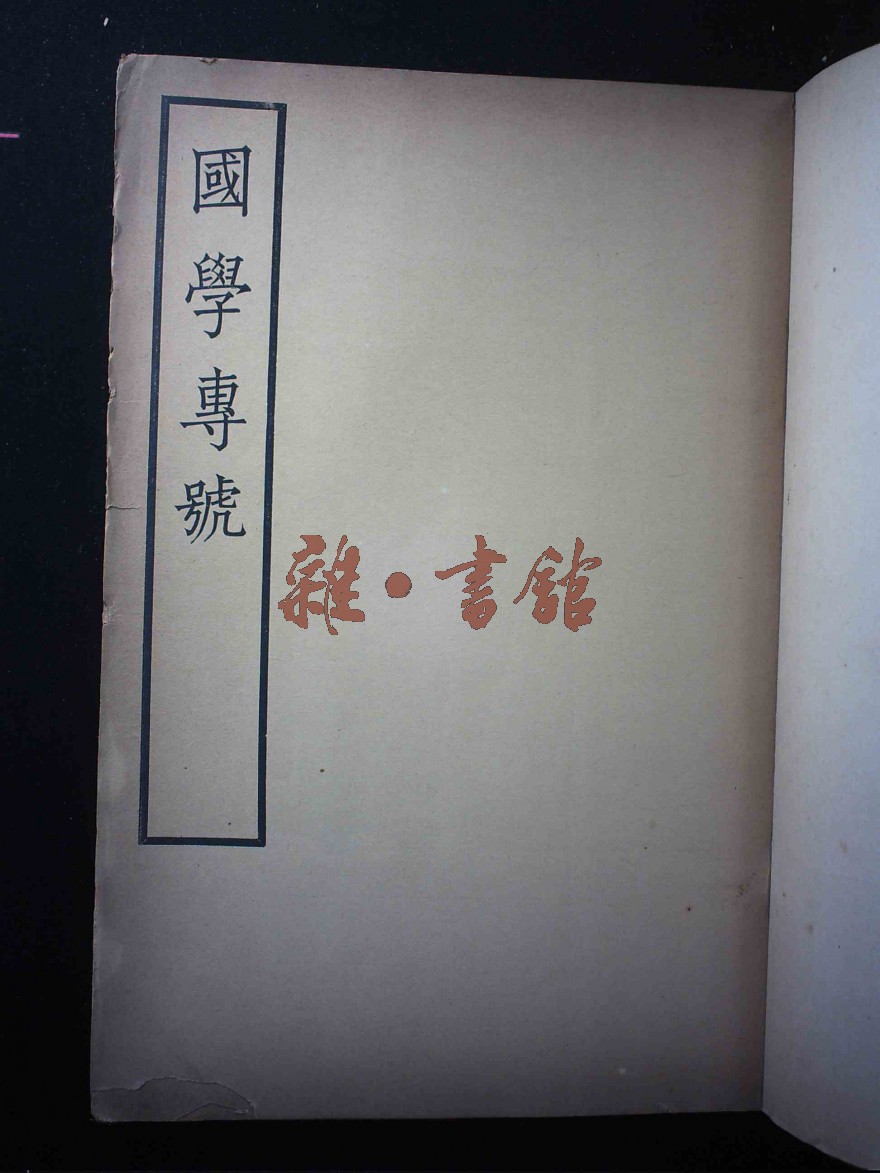 國學專號
雜·書館